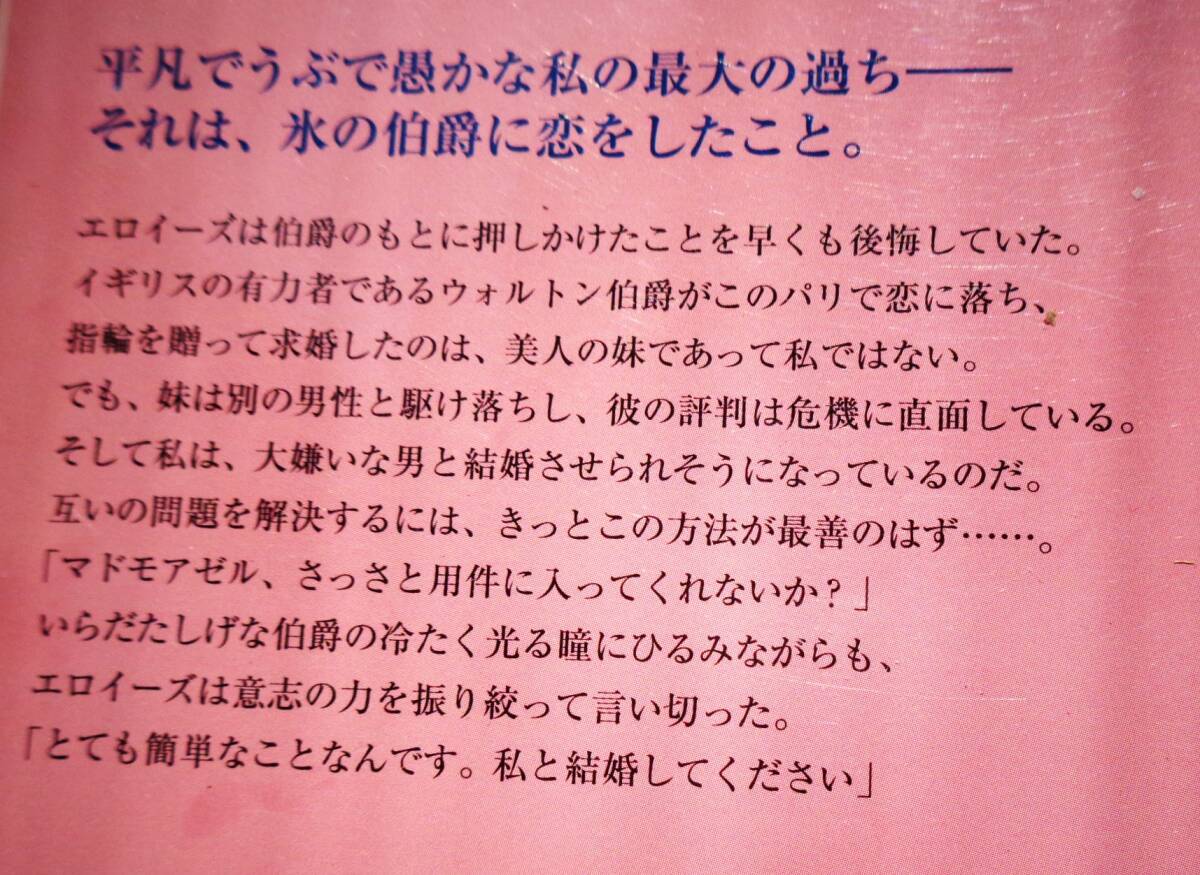 平凡でうぶで愚かな私の最大の過ち――
それは、氷の伯爵に恋をしたこと。
エロイーズは伯爵のもとに押しかけたことを早くも後悔していた。
イギリスの有力者であるウォルトン伯爵がこのパリで恋に落ち、
指輪を贈って求婚したのは、美人の妹であって私ではない。
でも、妹は別の男性と駆け落ちし、彼の評判は危機に直面している。
そして私は、大嫌いな男と結婚させられそうになっているのだ。
互いの問題を解決するには、きっとこの方法が最善のはず……。
「マドモアゼル、さっさと用件に入ってくれないか？」
いらだたしげな伯爵の冷たく光る瞳にひるみながらも、
エロイーズは意志の力を振り絞って言い切った。
「とても簡単なことなんです。私と結婚してください」